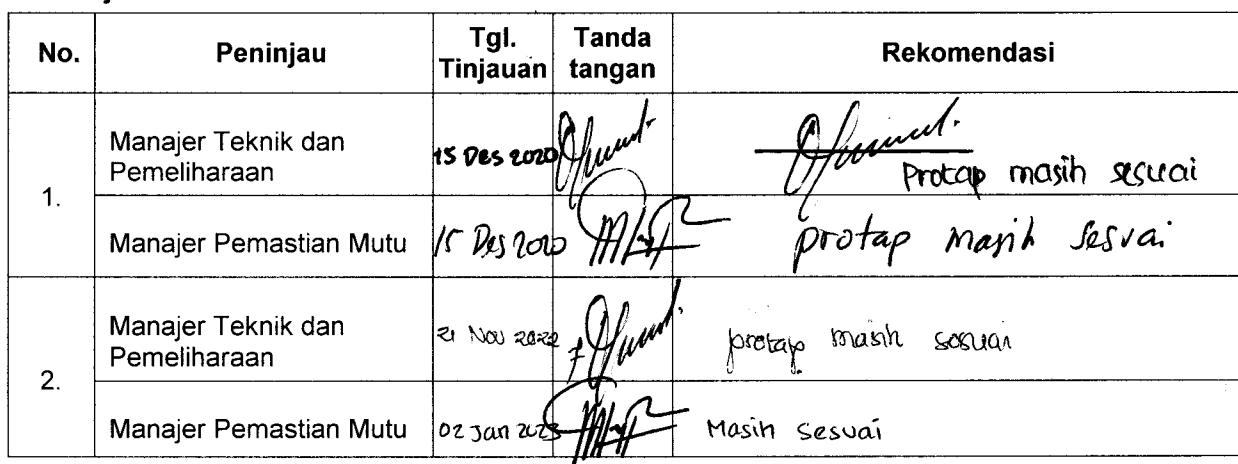 No. Peninjau Tgl. Tinjauan Tanda tangan Rekomendasi
1.
Manajer Teknik dan
Pemeliharaan
15 Des 2020
Protap masih sesuai
Manajer Pemastian Mutu 15 Des 2020 protap masih sesuai
2.
Manajer Teknik dan
Pemeliharaan
21 Nov 2022
protap masih sesuai
Manajer Pemastian Mutu 02 Jan 2023 Masih sesuai